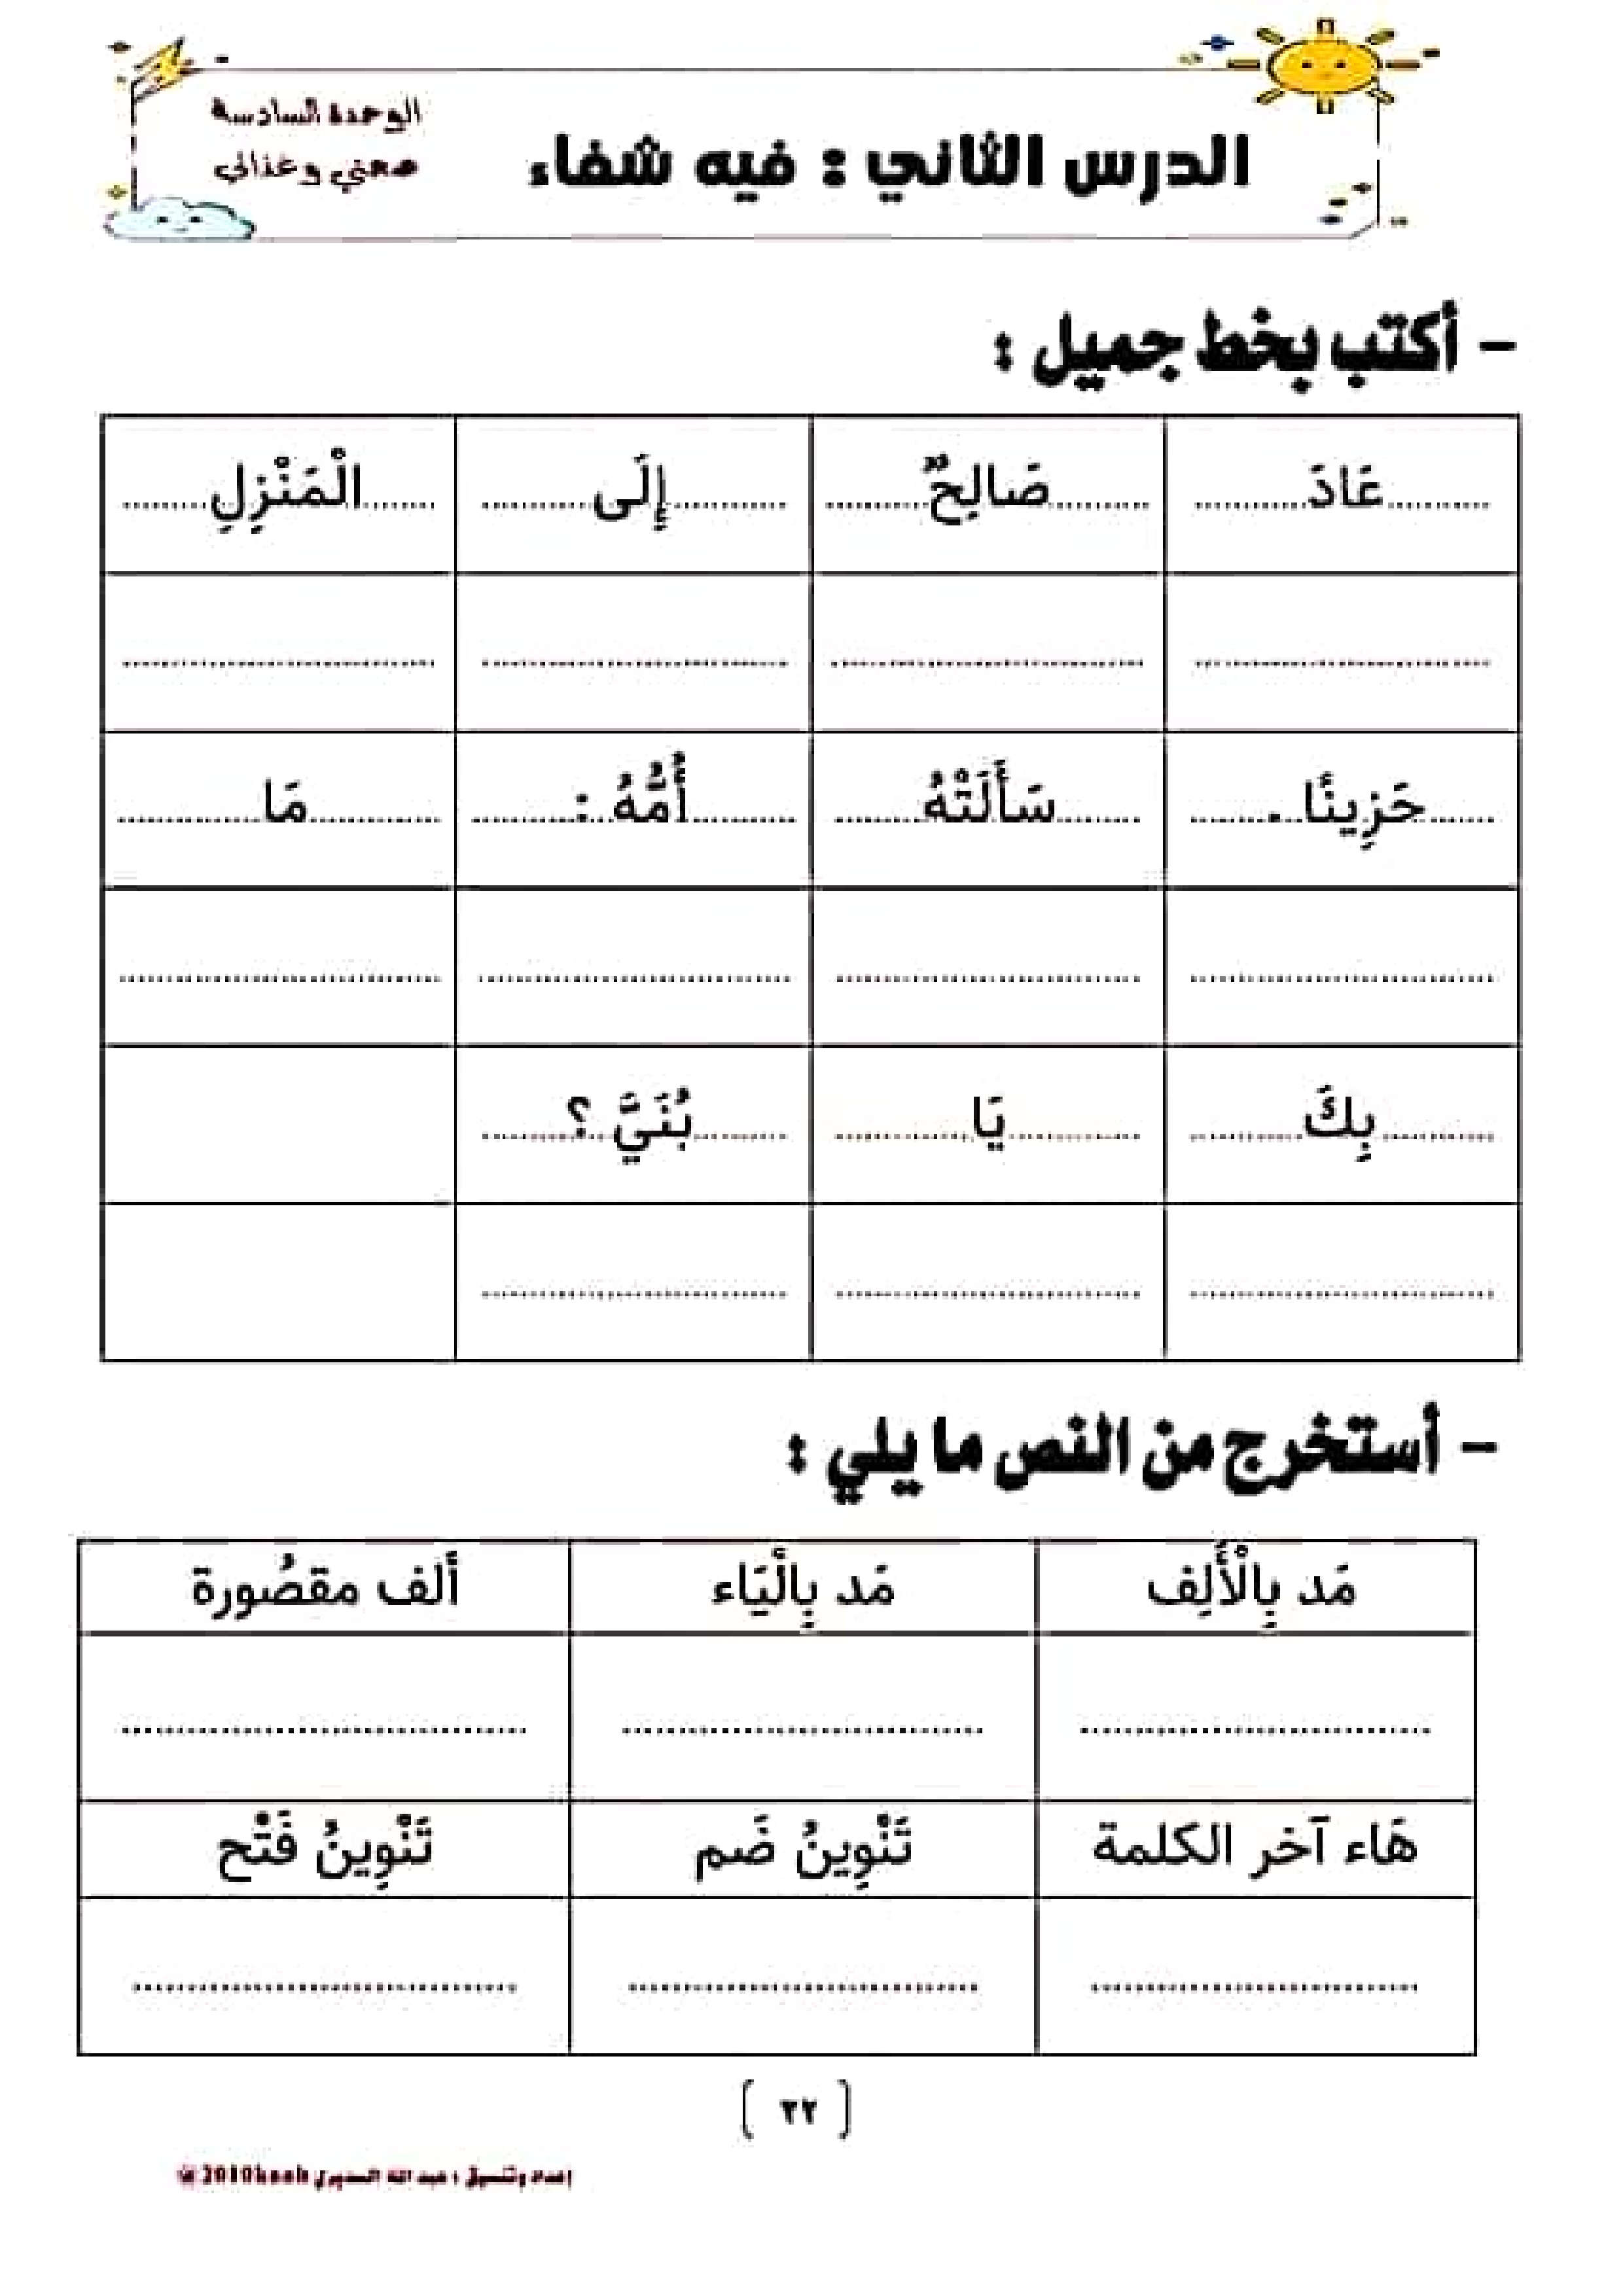 الوحدة السادسة
صحتي وغذائي
الدرس الثاني : فيه شفاء
- أكتب بخط جميل :
عَادَ صَالِحٌ إِلَى الْمَنْزِلِ
حَزِينًا . سَأَلَتْهُ أُمُّهُ : مَا
بِكَ يَا بُنَيَّ ؟
- أستخرج من النص ما يلي :
مَد بِالْأَلِف مَد بِالْيَاء ألف مقصُورة
هَاء آخر الكلمة تَنْوِينُ ضَم تَنْوِينُ فَتْح
( ٢٢ )
إعداد وتنسيق : عبد الله السديري